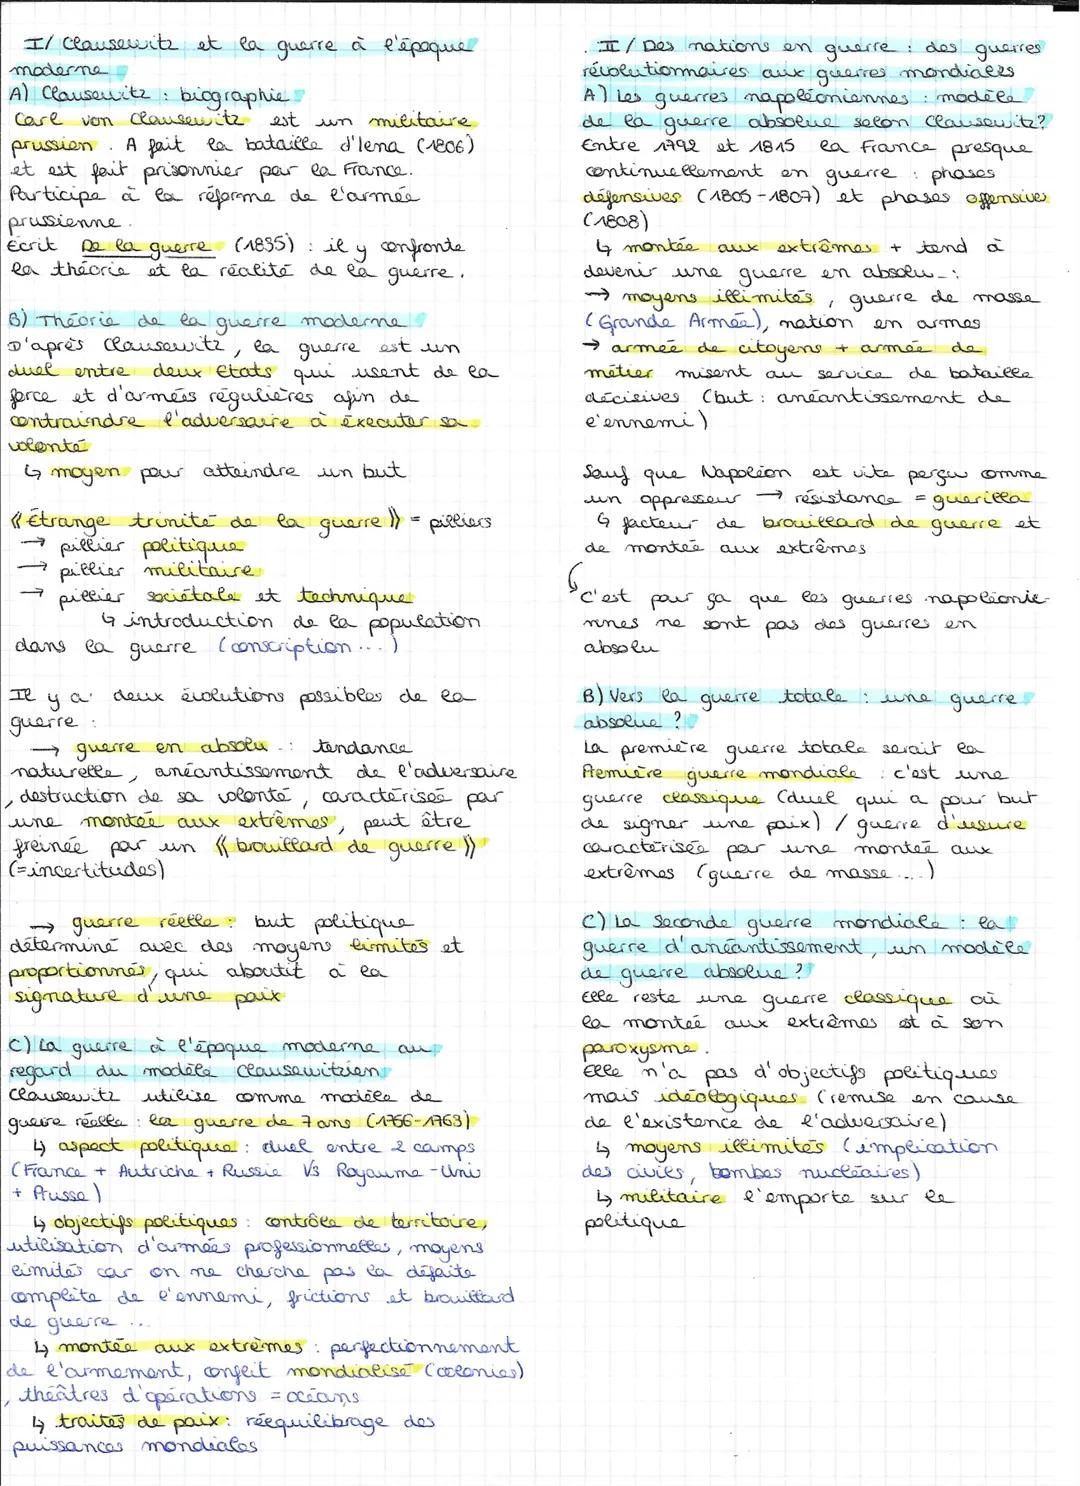 I/ Clausewitz et la guerre à l'époque
moderne
A) Clausewitz : biographie
Carl von Clausewitz est un militaire
prussien. A fait la bataille d'Iena (1806)
et est fait prisonnier par la France.
Participe à la réforme de l'armée
prussienne.
Écrit De la guerre (1835) : il y confronte
la théorie et la réalité de la guerre.
B) Théorie de la guerre moderne
D'après Clausewitz, la guerre est un
duel entre deux Etats qui usent de la
force et d'armées régulières afin de
contraindre l'adversaire à éxecuter sa
volonté
↳ moyen pour atteindre un but
« Étrange trinité de la guerre » = pilliers
→ pillier politique
→ pillier militaire
→ pillier sociétale et technique
↳ introduction de la population
dans la guerre (conscription ...)
Il y a deux évolutions possibles de la
guerre :
→ guerre en absolu : tendance
naturelle, anéantissement de l'adversaire
, destruction de sa volonté, caractérisée par
une montée aux extrêmes, peut être
freinée par un « brouillard de guerre »
(=incertitudes)
→ guerre réelle : but politique
déterminé avec des moyens limités et
proportionnés, qui aboutit à la
signature d'une paix
C) La guerre à l'époque moderne au
regard du modèle clausewitzien
Clausewitz utilise comme modèle de
guerre réelle : la guerre de 7 ans (1756-1763)
↳ aspect politique : duel entre 2 camps
(France + Autriche + Russie Vs Royaume-Uni
+ Prusse)
↳ objectifs politiques : contrôle de territoire,
utilisation d'armées professionnelles, moyens
limités car on ne cherche pas la défaite
complète de l'ennemi, frictions et brouillard
de guerre ...
↳ montée aux extrêmes : perfectionnement
de l'armement, conflit mondialisé (colonies)
, théâtres d'opérations = océans
↳ traités de paix : rééquilibrage des
puissances mondiales
II/ Des nations en guerre : des guerres
révolutionnaires aux guerres mondiales
A) Les guerres napoléoniennes : modèle
de la guerre absolue selon Clausewitz?
Entre 1792 et 1815 la France presque
continuellement en guerre : phases
défensives (1805-1807) et phases offensives
(1808)
↳ montée aux extrêmes + tend à
devenir une guerre en absolu :
→ moyens illimités, guerre de masse
(Grande Armée), nation en armes
→ armée de citoyens + armée de
métier misent au service de bataille
décisives (but : anéantissement de
l'ennemi)
Sauf que Napoléon est vite perçu comme
un oppresseur → résistance = guerilla
↳ facteur de brouillard de guerre et
de montée aux extrêmes
C'est pour ça que les guerres napoléonie-
nnes ne sont pas des guerres en
absolu
B) Vers la guerre totale : une guerre
absolue ?
La première guerre totale serait la
Première guerre mondiale : c'est une
guerre classique (duel qui a pour but
de signer une paix) / guerre d'usure
caractérisée par une montée aux
extrêmes (guerre de masse ...)
C) La seconde guerre mondiale : la
guerre d'anéantissement, un modèle
de guerre absolue ?
Elle reste une guerre classique où
la montée aux extrêmes est à son
paroxysme.
Elle n'a pas d'objectifs politiques
mais idéologiques (remise en cause
de l'existence de l'adversaire)
↳ moyens illimités (implication
des civils, bombes nucléaires)
↳ militaire l'emporte sur le
politique